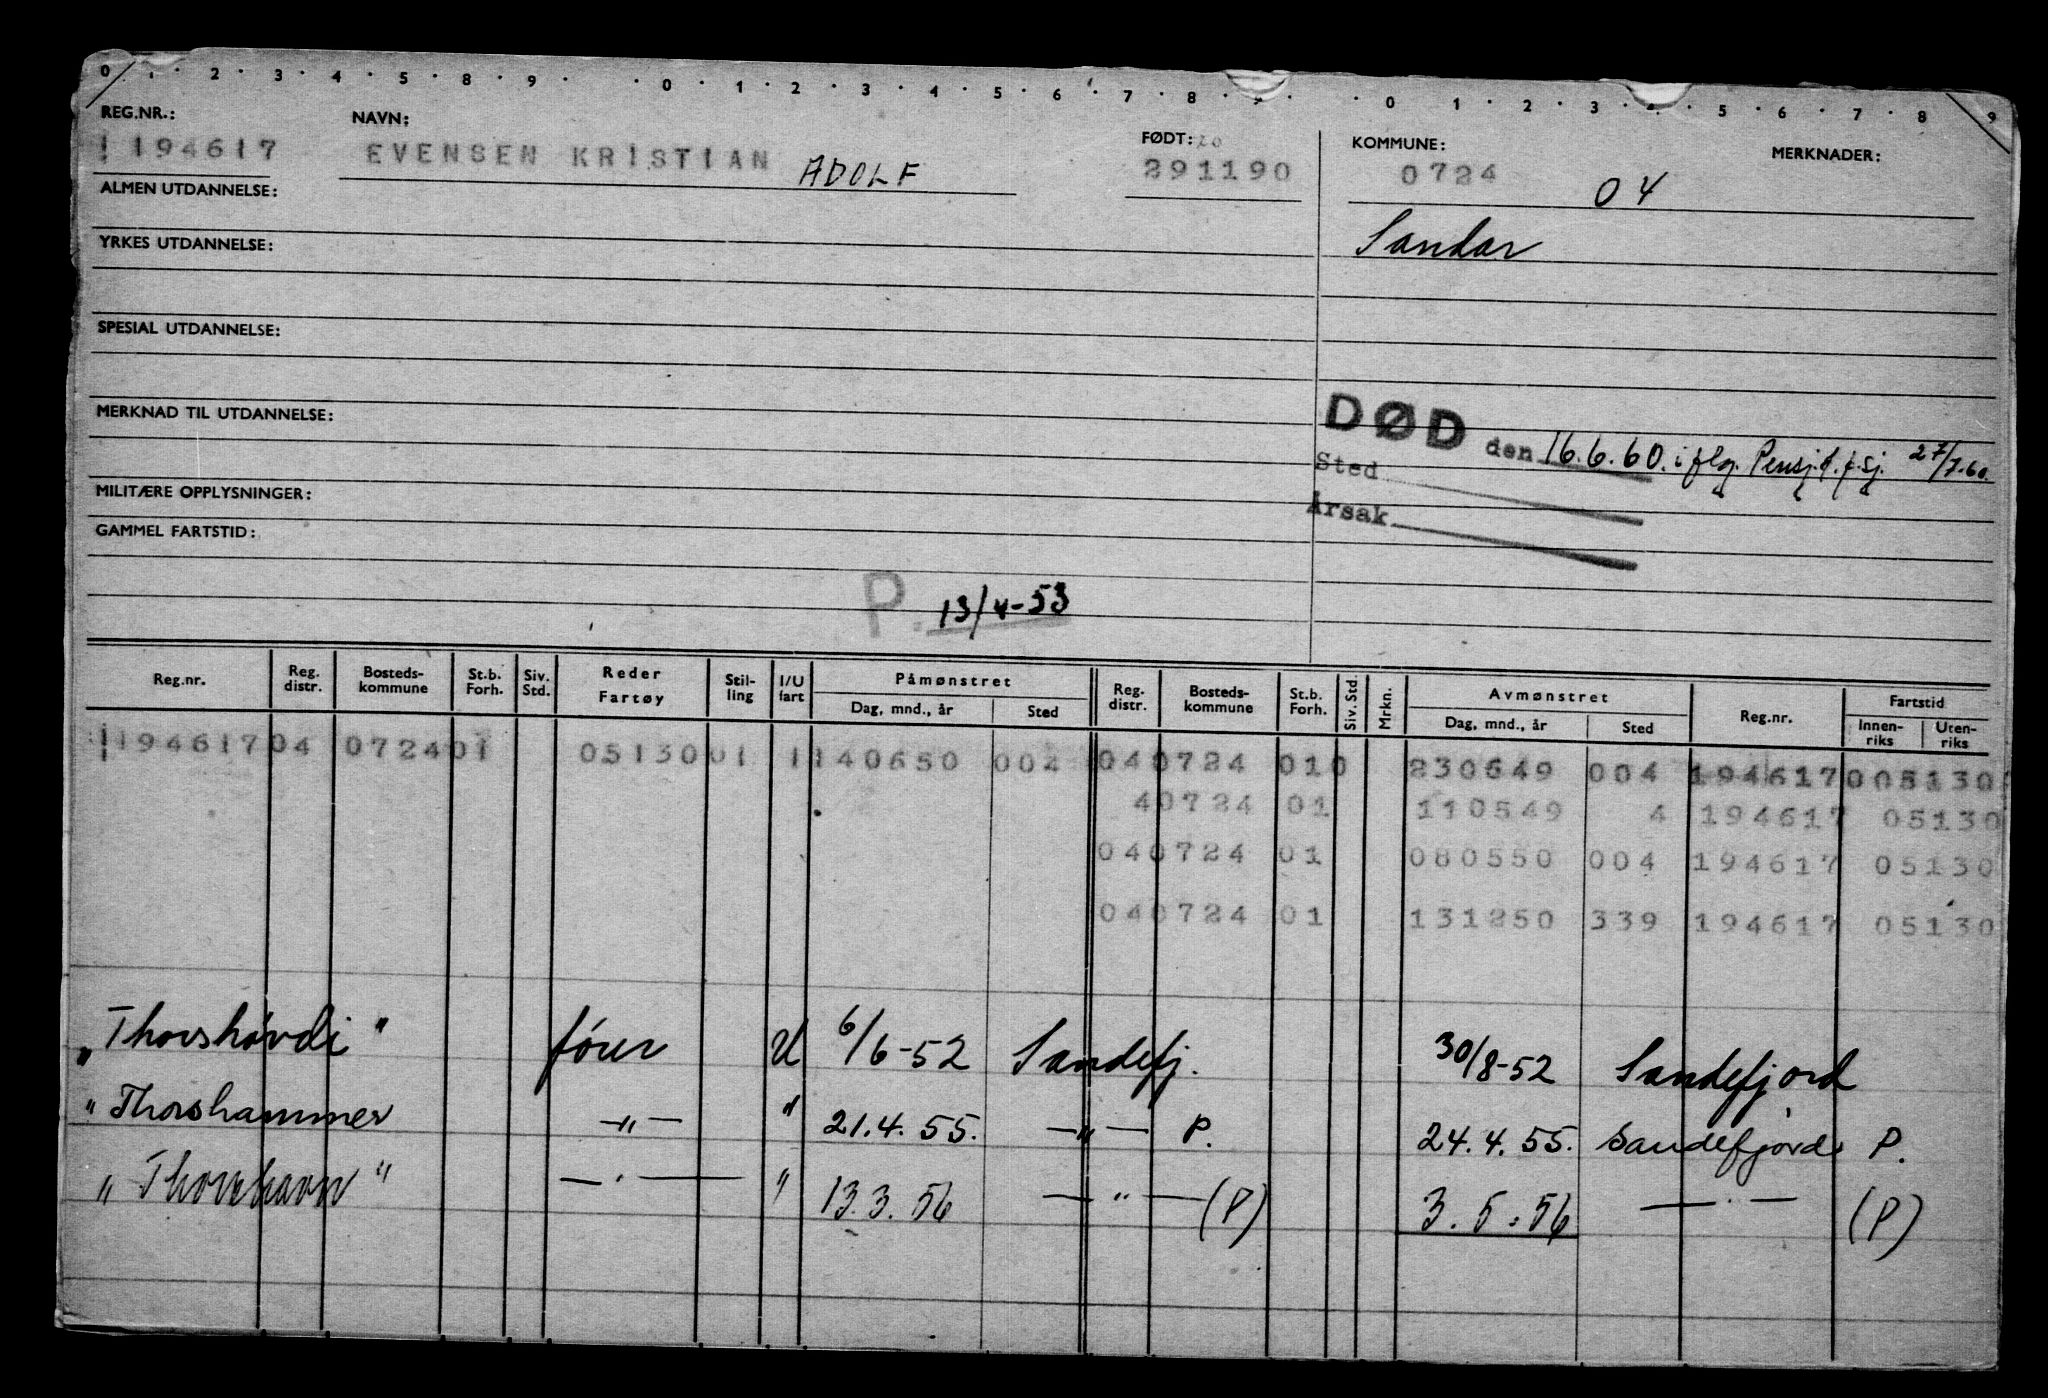 0 1 2 3 4 5 8 9 0 1 2 3 4 5 6 7 8 9 0 1 2 3 4 5 6 7 8 9
REG.NR.: NAVN: FØDT: 20 KOMMUNE: MERKNADER:
194617 EVENSEN KRISTIAN ADOLF 291190 0724 04
ALMEN UTDANNELSE:
Sandar
YRKES UTDANNELSE:
SPESIAL UTDANNELSE:
MERKNAD TIL UTDANNELSE:
DØD den 16.6.60. iflg. Pensj.t.f.sj. 27/7-60.
Sted
MILITÆRE OPPLYSNINGER:
Årsak
GAMMEL FARTSTID:
P. 13/4-53
Reg.nr. Reg. distr. Bosteds- kommune St.b. Forh. Siv. Std. Reder Fartøy Stil- ling I/U fart Påmønstret Dag, mnd., år Sted Reg. distr. Bosteds- kommune St.b. Forh. Siv. Std. Mrkn. Avmønstret Dag, mnd., år Sted Reg.nr. Fartstid Innen- riks Uten- riks
194617 04 0724 01 05130 01 1 140650 004 04 0724 010 230649 004 194617 005130
4 0724 01 110549 4 194617 05130
04 0724 01 080550 004 194617 05130
04 0724 01 131250 339 194617 05130
"Thorshøvdi" fører U 6/6-52 Sandefj. 30/8-52 Sandefjord
"Thorshammer —"— " 21.4.55. —"— P. 24.4.55. Sandefjord P.
"Thorshavn" —"— " 13.3.56 —"— (P) 3.5.56 —"— (P)